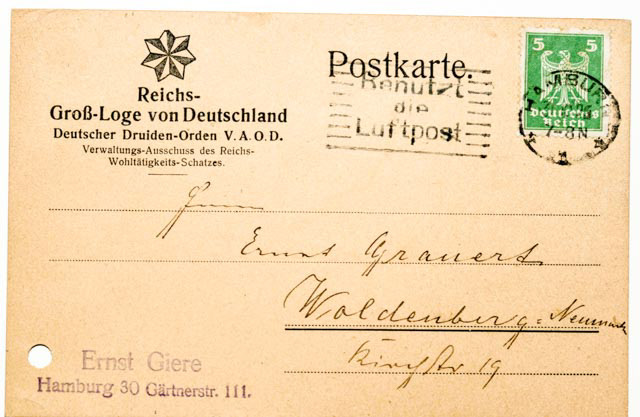 Reichs-
Groß-Loge von Deutschland
Deutscher Druiden-Orden V. A. O. D.
Verwaltungs-Ausschuss des Reichs-
Wohltätigkeits-Schatzes.
Postkarte.
Benutzt
die
Luftpost
5 5
Deutsches
Reich
HAMBURG
7-8N
1
Herrn
Ernst Grauert.
Woldenberg-Neumark
Kirchstr 19
Ernst Giere
Hamburg 30 Gärtnerstr. 111.